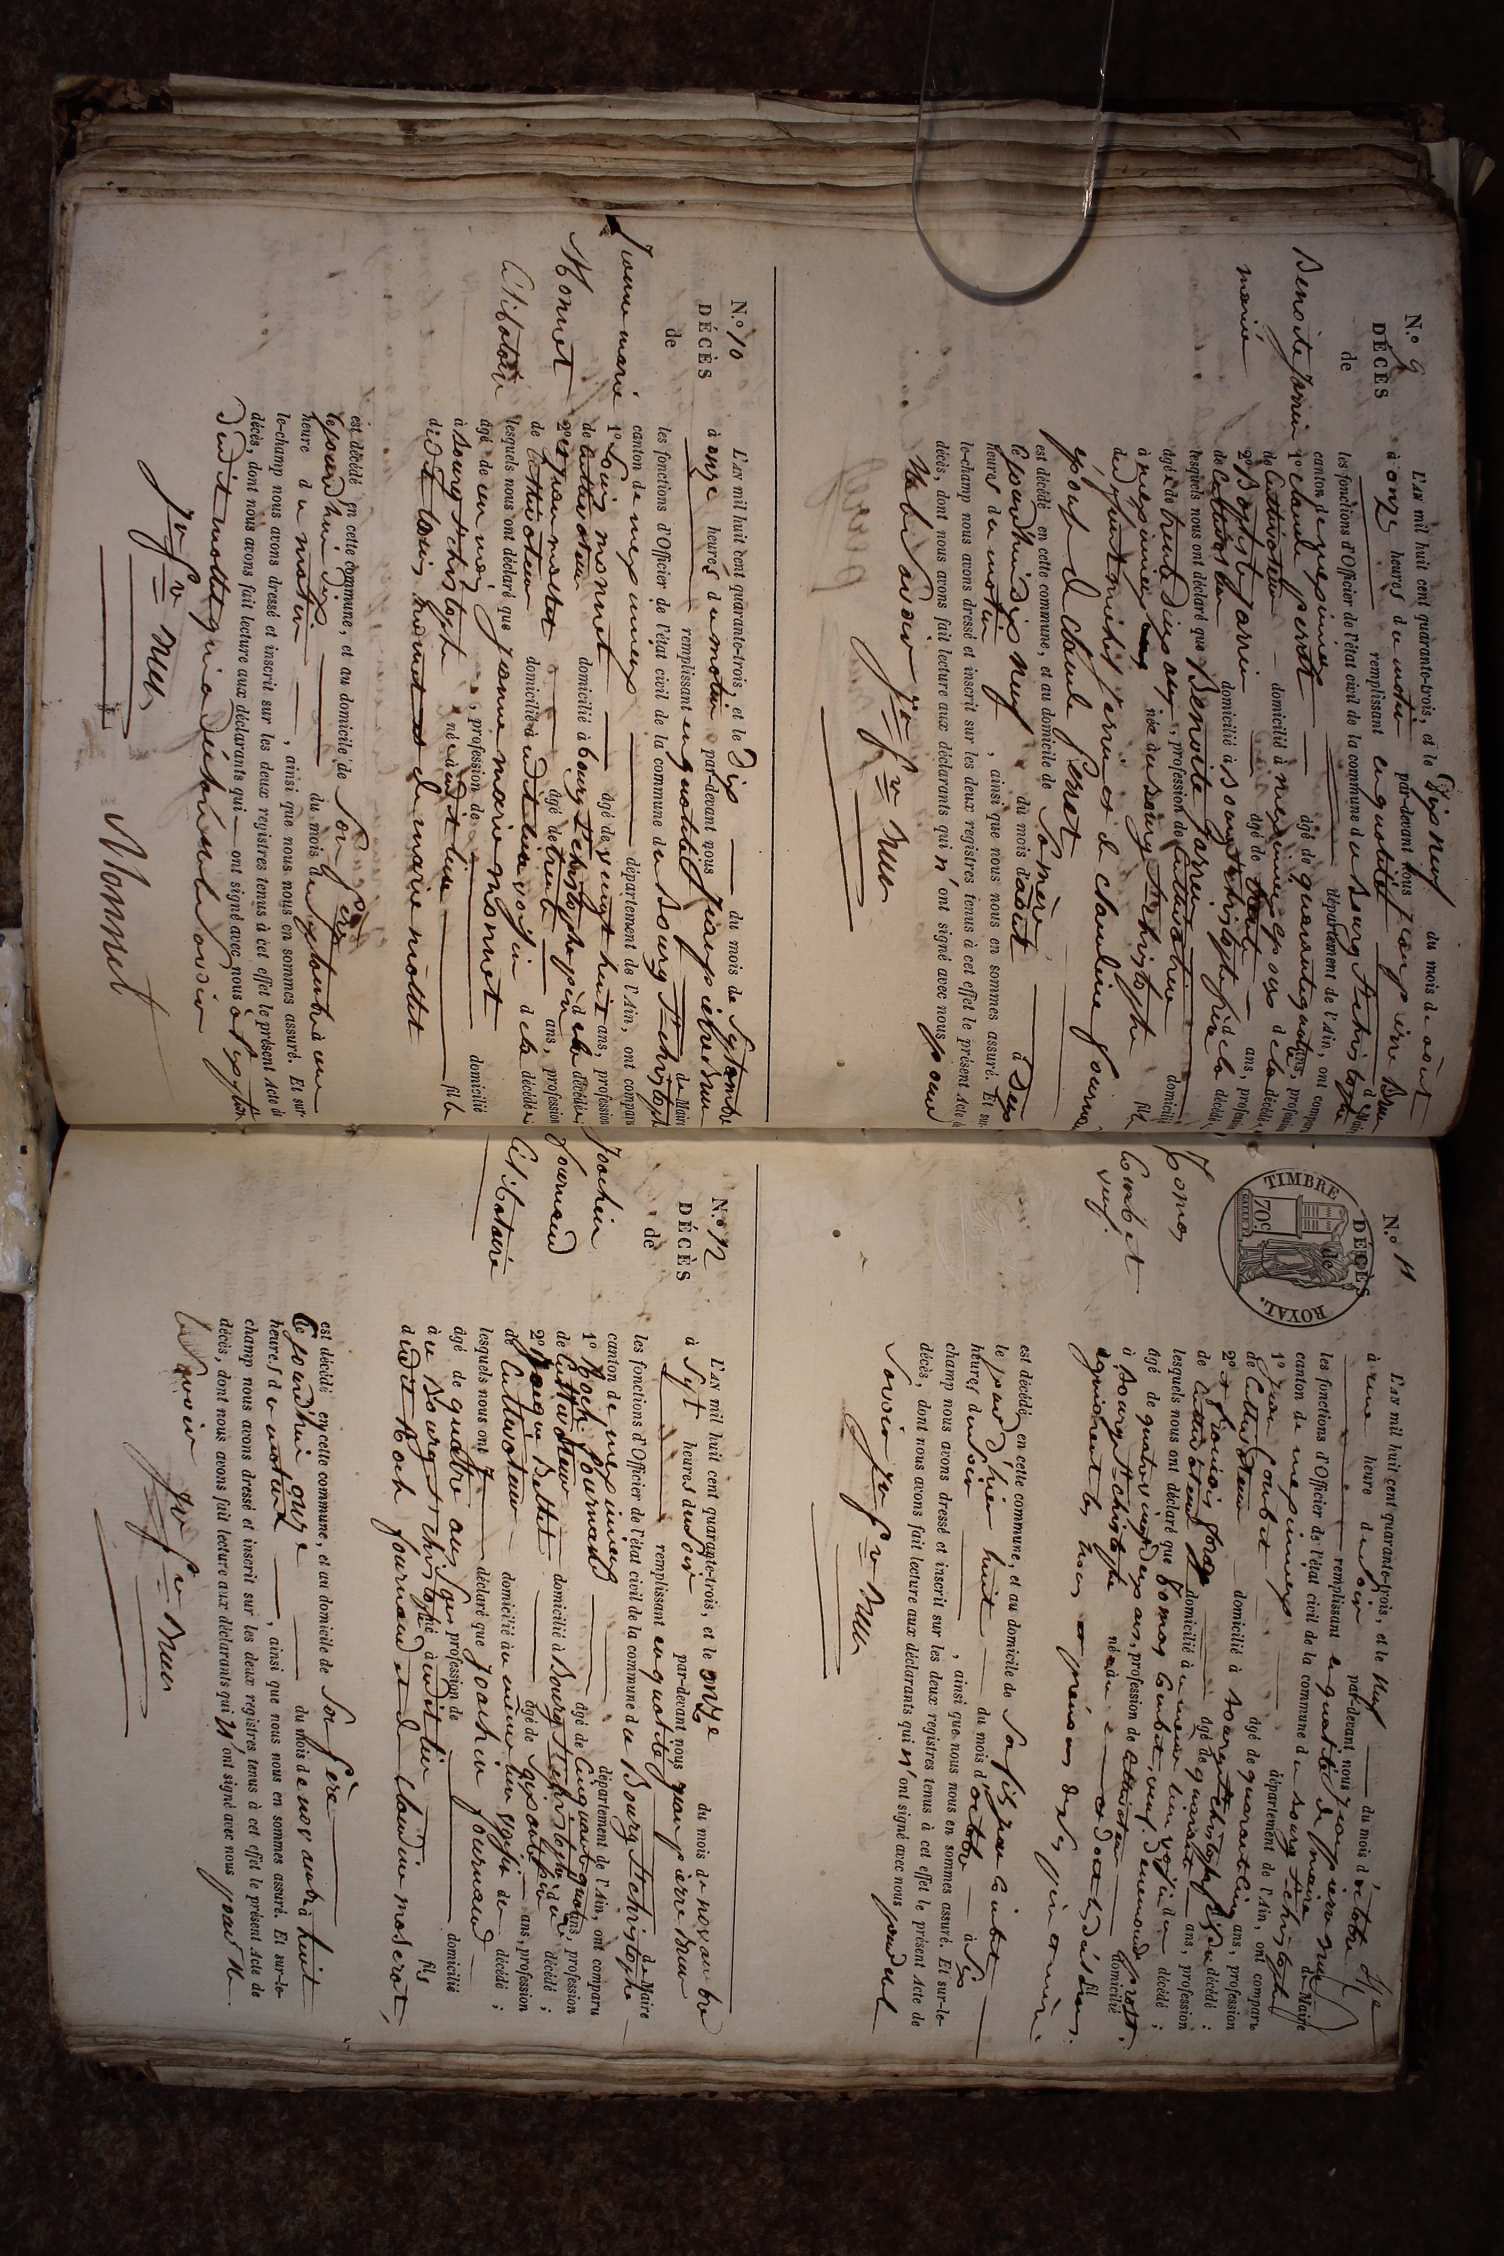 N.º 9
DÉCÈS
de
Benoite Jarrin
mariée
L'AN mil huit cent quarante-trois, et le Dix neuf du mois de août
à onze heures du matin par-devant nous jean pierre Brun
remplissant en qualité de Maire
les fonctions d'Officier de l'état civil de la commune du Bourg St christophe
canton de meximieux département de l'Ain, ont comparu
1º claude perret âgé de quarante quatre ans, profession
de Cultivateur domicilié à meximieux epoux de la décédée
2º Baptiste jarrin âgé de trente ans, profession
de cultivateur domicilié à Bourg st christophe frère de la décédée
lesquels nous ont déclaré que Benoite Jarrin
âgée de trente Deux ans, profession de Cultivatrice domiciliée
à meximieux née au Bourg St christophe fille
de défunt michel jarrin et de claudine fournand
épouse de claude perret
est décédé en cette commune, et au domicile de sa mère
le jourd'huis dix neuf du mois d'août à Deux
heures du matin, ainsi que nous nous en sommes assuré. Et sur-
le-champ nous avons dressé et inscrit sur les deux registres tenus à cet effet le présent Acte de
décès, dont nous avons fait lecture aux déclarants qui n'ont signé avec nous pour
ne le savoir
N.º 10
DÉCÈS
de
Jeanne marie
Monnet
Célibataire
L'AN mil huit cent quarante-trois, et le Dix du mois de Septembre
à onze heures du matin par-devant nous jean pierre Brun
remplissant en qualité de Maire
les fonctions d'Officier de l'état civil de la commune du Bourg St christophe
canton de meximieux département de l'Ain, ont comparu
1º Louis monnet âgé de vingt huit ans, profession
de cultivateur domicilié à bourg St christophe père de la décédée
2º et jean mollet âgé de trente ans, profession
de cultivateur domicilié à udit lieu voisin de la décédée
lesquels nous ont déclaré que Jeanne marie monnet
âgé de un mois, profession de domicilié
à Bourg St christophe né audit lieu fille
dudit Louis monnet et de marie mollet
est décédé en cette commune, et au domicile de Son père
le jourd'hui dix du mois de septembre à une
heure du matin, ainsi que nous nous en sommes assuré. Et sur-
le-champ nous avons dressé et inscrit sur les deux registres tenus à cet effet le présent Acte de
décès, dont nous avons fait lecture aux déclarants qui ont signé avec nous à l'exception
dudit mollet qui a déclaré ne le savoir
Monnet
N.º 11
DÉCÈS
de
TIMBRE
ROYAL.
70c
Tomas
Combet
veuf
L'AN mil huit cent quarante-trois, et le Neuf du mois d'octobre
à une heure du soir par-devant nous jean pierre Brun
remplissant en qualité de maire de Maire
les fonctions d'Officier de l'état civil de la commune du Bourg St christophe
canton de meximieux département de l'Ain, ont comparu
1º jean Combet âgé de quarante cinq ans, profession
de Cultivateur domicilié à Bourg St christophe fils du décédé ;
2º et françois âgé de quarante ans, profession
de Cultivateur domicilié à u même lieu voisin du décédé ;
lesquels nous ont déclaré que Tomas Combet, veuf de
âgé de ans, profession de cultivateur domicilié
à Bourg St christophe né fils
est décédé en cette commune, et au domicile de Son fils jean Combet
le jour d'hier huit du mois d'octobre à
heures du soir, ainsi que nous nous en sommes assuré. Et sur-le-
champ nous avons dressé et inscrit sur les deux registres tenus à cet effet le présent Acte de
décès, dont nous avons fait lecture aux déclarants qui n'ont signé avec nous pour ne le
Savoir
N.º 12
DÉCÈS
de
Joachin
fournand
Célibataire
L'AN mil huit cent quarante-trois, et le onze du mois de novembre
à Sept heures du Soir par-devant nous jean pierre Brun
remplissant en qualité de Maire
les fonctions d'Officier de l'état civil de la commune du Bourg St christophe
canton de meximieux département de l'Ain, ont comparu
1º Roch fournand âgé de Cinquante quatre ans, profession
de Cultivateur domicilié à Bourg St christophe père du décédé ;
2º jacque Bellet âgé de ans, profession
de Cultivateur domicilié à u même lieu voisin du décédé ;
lesquels nous ont déclaré que joachin fournand
âgé de quatre ans, profession de domicilié
à ce Bourg st christophe né à udit lieu fils
dudit Roch fournand et de claudine moserot,
est décédé en cette commune, et au domicile de Son père
le jourd'hui onze du mois de novembre à huit
heures du matin, ainsi que nous nous en sommes assuré. Et sur-le-
champ nous avons dressé et inscrit sur les deux registres tenus à cet effet le présent Acte de
décès, dont nous avons fait lecture aux déclarants qui n'ont signé avec nous pour ne
le savoir